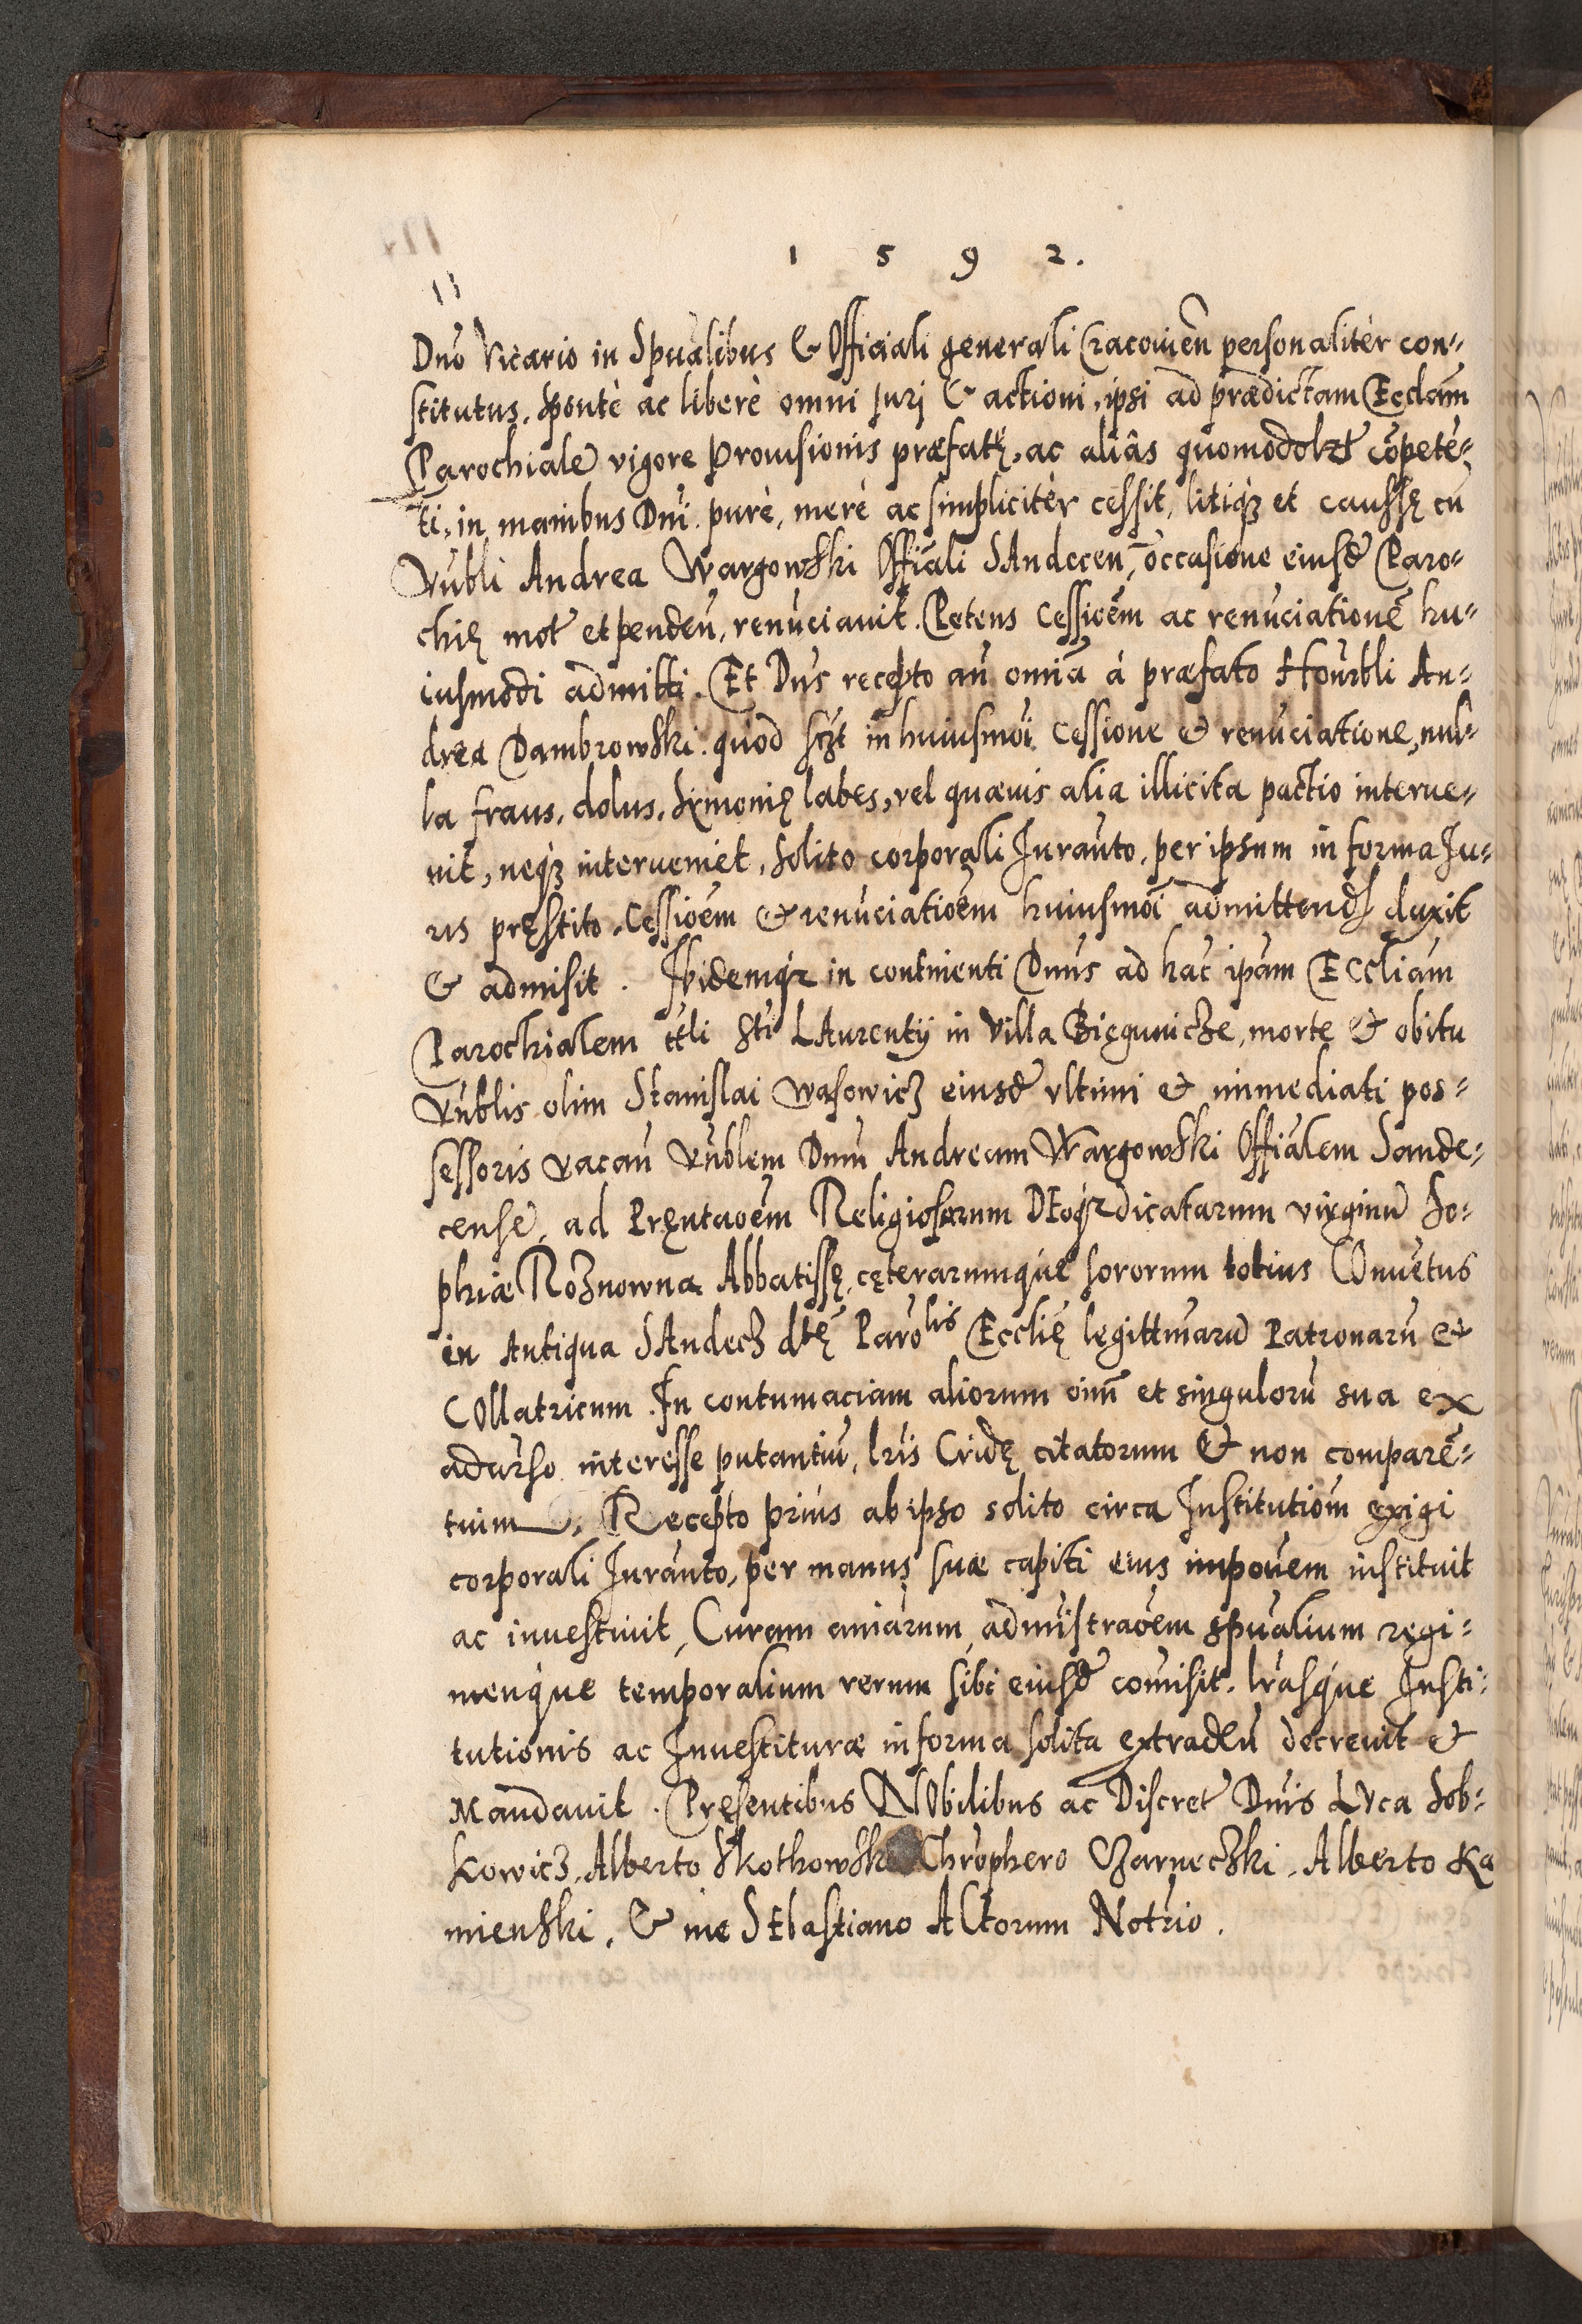 1 5 9 2.
Dno Vicario in Spualibus & Officiali generali Cracouien personalitèr con-
stitutus. Spontè ac liberè omni Iurj & actioni, ipsi ad prædictam Ecclam
Parochiale vigore Prouisionis præfatę, ac aliâs quomodolzt cōpetē-
ti, in manibus Dni. purè, merè ac simplicitèr cessit, litiqз et caussę cū
Vnbli Andrea Wargowski Offiali SAndecen, occasione eiusd Paro-
chię mot et penden, renūciauit. Petens Cessioēm ac renūciationē hu-
iusmodi admitti. Et Dns recepto an omīa à præfato Honrbli An-
drea Dambrowski. quòd sczt in huiusmōi Cessione & renūciatione, nul-
la fraus, dolus, Symonię labes, vel quæuis alia illicita pactio interue-
nit, neqз interueniet, solito corporali Iuranto, per ipsum in forma Iu-
ris pręstito, Cessioēm & renūciatioēm huiusmōi admittend duxit
& admisit. Ibidemqз in continenti Dnus ad hāc ipam Eccliam
Parochialem ttli Sti LAurentÿ in Villa Biegunicze, morte & obitu
Vnblis olim Stanislai Wasowicz eiusd vltimi & immediati pos-
sessoris vacan Vnblem Dnm Andream Wargowski Offialem Sande-
censē, ad Pręntaoēm Religiosarum DEoqз dicatarum virginū So-
phiæ Roznowna Abbatissę, cęterarumque sororum totius COnuētus
in Antiqua SAndecz dtę Parolis Ecclię legittimarū Patronarū &
COllatricum. In contumaciam aliorum oīm et singulorū sua ex
aduerso interesse putantiū, lris Cridę citatorum & non comparē-
tium. Recepto prius ab ipso solito circa Institutiom exigi
corporali Iuranto, per manus suæ capiti eius impoūem instituit
ac inuestiuit, Curam aniarum, admistraoēm spualium regi-
menque temporalium rerum sibi eiusd comisit. lrasque Insti-
tutionis ac Inuestituræ in forma solita extraden decreuit &
Mandauit. Pręsentibus NObilibus ac Discret Dnis LVca Sob-
kowicz, Alberto Skotkowsk Chrophero Czarneczki, Alberto Ka
mienski, & me SEbastiano ACtorum Notrio.